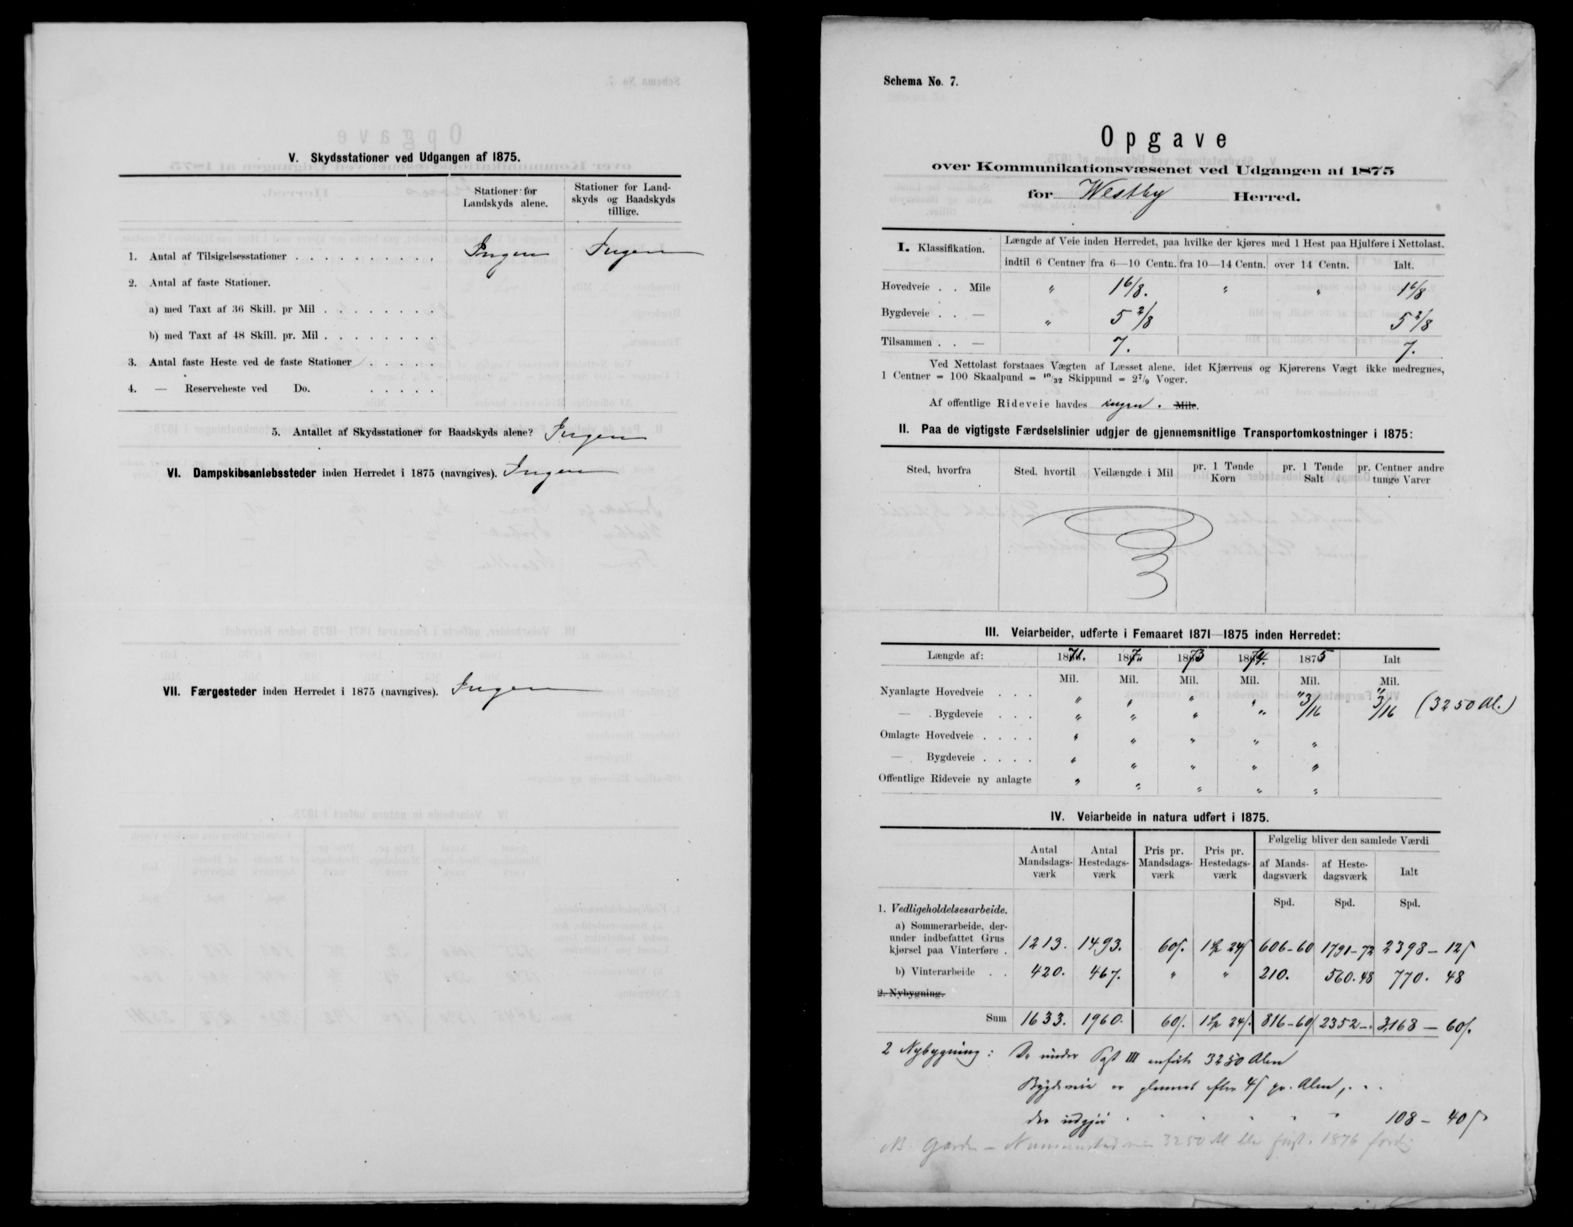 V. Skydsstationer ved Udgangen af 1875.
Stationer for Landskyds alene.
Stationer for Landskyds og Baadskyds tillige.
1. Antal af Tilsigelsesstationer . . . . . . . . . . . Ingen Ingen
2. Antal af faste Stationer.
a) med Taxt af 36 Skill. pr Mil . . . . . . . .
b) med Taxt af 48 Skill. pr. Mil . . . . . . . .
3. Antal faste Heste ved de faste Stationer . . . . .
4. — Reserveheste ved Do. . . . . .
5. Antallet af Skydsstationer for Baadskyds alene? Ingen
VI. Dampskibsanløbssteder inden Herredet i 1875 (navngives). Ingen
VII. Færgesteder inden Herredet i 1875 (navngives). Ingen
Schema No. 7.
Opgave
over Kommunikationsvæsenet ved Udgangen af 1875
for Westby Herred.
I. Klassifikation. Længde af Veie inden Herredet, paa hvilke der kjøres med 1 Hest paa Hjulføre i Nettolast.
indtil 6 Centner fra 6—10 Centn. fra 10—14 Centn. over 14 Centn. Ialt.
Hovedveie . . Mile " 1 6/8. " " 1 6/8
Bygdeveie . . — " 5 2/8 5 2/8
Tilsammen . . — 7. 7.
Ved Nettolast forstaaes Vægten af Læsset alene, idet Kjærrens og Kjørerens Vægt ikke medregnes,
1 Centner = 100 Skaalpund = 10/32 Skippund = 2 7/9 Voger.
Af offentlige Rideveie havdes ingen. Mile.
II. Paa de vigtigste Færdselslinier udgjør de gjennemsnitlige Transportomkostninger i 1875:
Sted, hvorfra Sted, hvortil Veilængde i Mil pr. 1 Tønde Korn pr. 1 Tønde Salt pr. Centner andre tunge Varer
III. Veiarbeider, udførte i Femaaret 1871—1875 inden Herredet:
Længde af: 1871. 187" 1873 1874. 1875 Ialt
Mil. Mil. Mil. Mil. Mil. Mil.
Nyanlagte Hovedveie . . . " " " " " "
— Bygdeveie . . . " " " " 3/16 3/16 (3250 Al.)
Omlagte Hovedveie . . . . " " " " "
— Bygdeveie . . . . " " " " "
Offentlige Rideveie ny anlagte " " " " "
IV. Veiarbeide in natura udført i 1875.
Antal Mandsdagsværk Antal Hestedagsværk Pris pr. Mandsdagsværk Pris pr. Hestedagsværk Følgelig bliver den samlede Værdi
af Mandsdagsværk af Hestedagsværk Ialt
Spd. Spd. Spd.
1. Vedligeholdelsesarbeide.
a) Sommerarbeide, derunder indbefattet Gruskjørsel paa Vinterføre . 1213. 1493. 60ſ. 1 Sp 24ſ 606-60 1791-72 2398-12ſ
b) Vinterarbeide . . 420. 467. " " 210. 560.48 770. 48
2. Nybygning.
Sum 1633. 1960. 60ſ. 1 Sp 24ſ. 816-60 2352-. 3168-60ſ.
2 Nybygning: De under Pgt III anførte 3250 Alen
Bygdeveie er efter 4ſ pr. Alen,
der udgjør " " " " 108-40ſ
NB. 3250 Al 1876